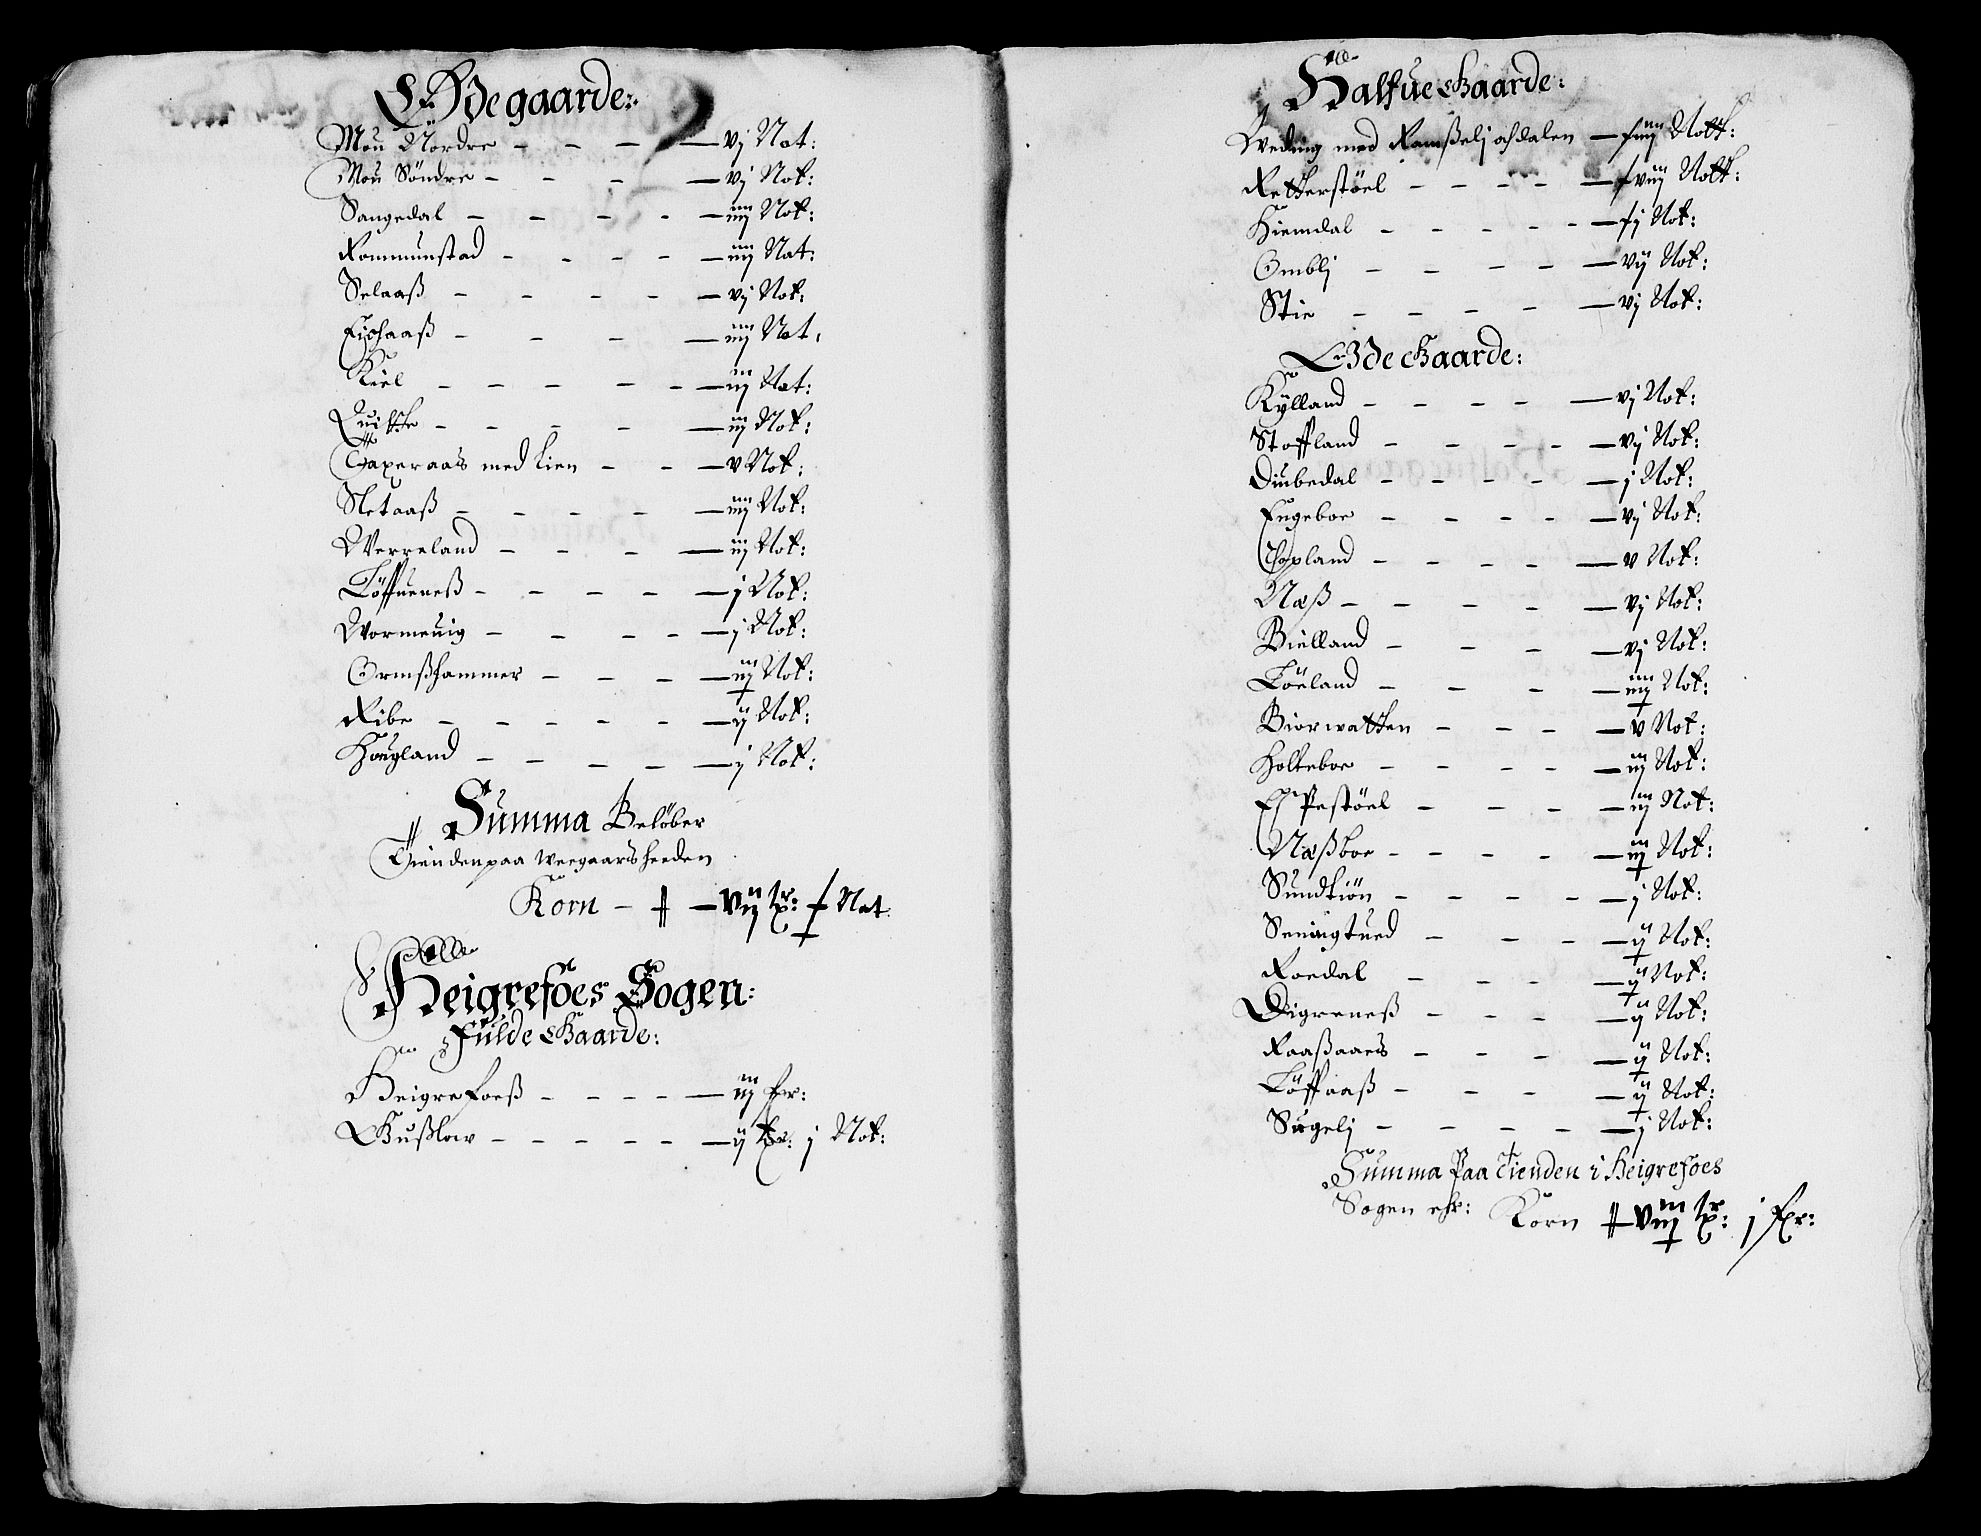 Ødegaarde:
Mou Nordre - - - — vj Not:
Mou Söndre - - - — vj Not:
Sangedal - - - - — iiij Not:
Rommunstad - - - - — iiij Not:
Selaaß - - - - — vj Not:
Eschaaß - - - — iiij Not:
Kiel - - - - - — iij Not:
Quitthe - - - - — iij Not:
Taxeraas med Lien - - — v Not:
Netaaß - - - - — iiij Not:
Werreland - - - — iij Not:
Löffueneß - - - - — j Not:
Wormeuig - - - - — j Not:
Ormßhammer - - - — iij Not:
Ribe - - - - - — ij Not:
Hougland - - - - — j Not:
Summa Belöber
Tienden paa Weegaarsheeden
Korn - — vij tr: Not
Heigrefoes Sogen:
Fulde Gaarde:
Heigrefoeß - - - - — iij fr:
Gußlow - - - - - — ij fr: j Not:
Halfue Gaarde:
Weding med Ramßelj och dalen — Nott:
Retterstöel - - - - — Nott:
Hiemdal - - - - - — Not:
Omblj - - - - — vij Not:
Stie - - - - — vj Not:
Øde Gaarde:
Kylland - - - - — vj Not:
Stoffland - - - - — vj Not:
Diubedal - - - - — j Not:
Engeboe - - - - — vj Not:
Espland - - - - — v Not:
Næß - - - - — vj Not:
Bielland - - - — vj Not:
Löeland - - - — iiij Not:
Biorwatten - - - — v Not:
Holteboe - - - - — iij Not:
Espestöel - - - — iij Not:
Næßboe - - - - — iij Not:
Sundtiön - - - - - — j Not:
Seuigtued - - - — ij Not:
Roedal - - - — ij Not:
Digreneß - - - — ij Not:
Raaßaaes - - - — ij Not:
Löffaaß - - - — ij Not:
Sugelj - - - - — j Not:
Summa Paa Tienden i Heigrefoes
Sogen ehr: Korn — viij tr: j fr: